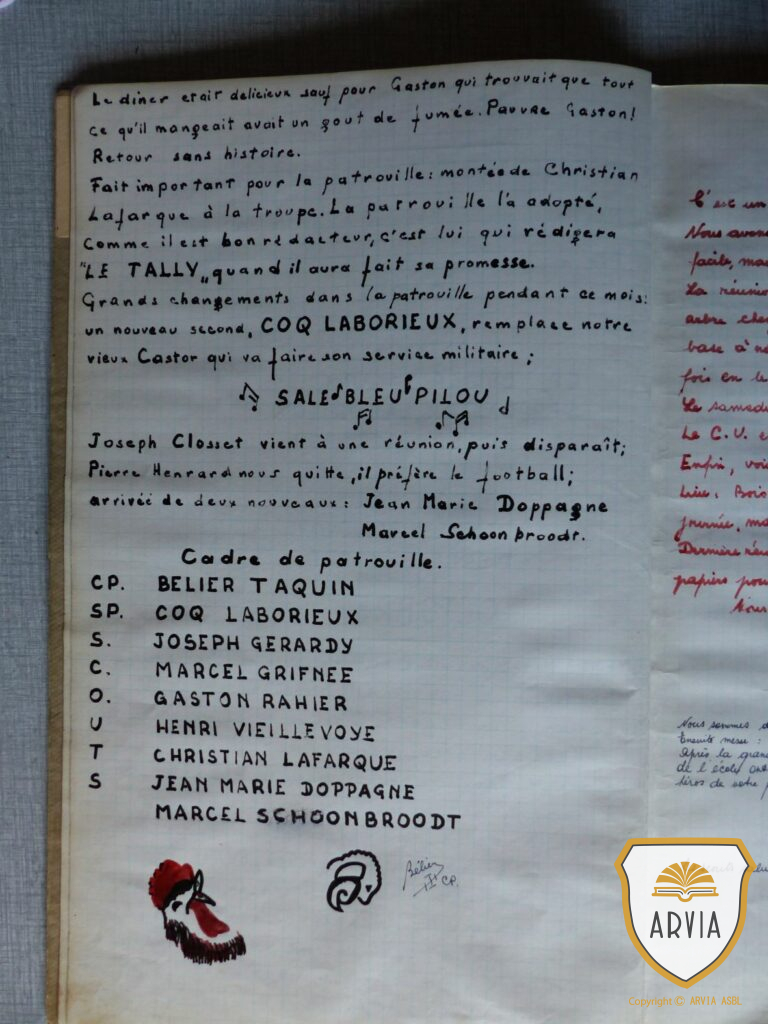 Le diner etait delicieux sauf pour Gaston qui trouvait que tout
ce qu'il mangeait avait un gout de fumée. Pauvre Gaston!
Retour sans histoire.
Fait important pour la patrouille: montée de Christian
Lafarque à la troupe. La patrouille l'a adopté,
Comme il est bon rédacteur, c'est lui qui rédigera
"LE TALLY" quand il aura fait sa promesse.
Grands changements dans la patrouille pendant ce mois:
un nouveau second, COQ LABORIEUX, remplace notre
vieux Castor qui va faire son service militaire;
SALE BLEU PILOU
Joseph Closset vient à une réunion, puis disparaît;
Pierre Henrard nous quitte, il préfère le football;
arrivée de deux nouveaux: Jean Marie Doppagne
Marcel Schoonbroodt.
Cadre de patrouille.
CP. BELIER TAQUIN
SP. COQ LABORIEUX
S. JOSEPH GERARDY
C. MARCEL GRIFNEE
O. GASTON RAHIER
U HENRI VIEILLEVOYE
T CHRISTIAN LAFARQUE
S JEAN MARIE DOPPAGNE
MARCEL SCHOONBROODT
Bélier
CP.
C'est un
Nous avons
facile, ma
La réunion
arbre
base à
fois en le
Le samedi
Le C.U. e
Enfin, voi
lieu: Bois
journée, ma
Dernière réu
papiers pour
Nous
Nous sommes d
Ensuite messe:
Après la grand
de l'école
de notre p
ARVIA
Copyright © ARVIA ASBL